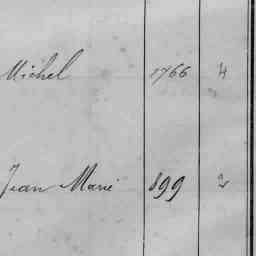 Michel 1766 4
Jean Marie 899 2